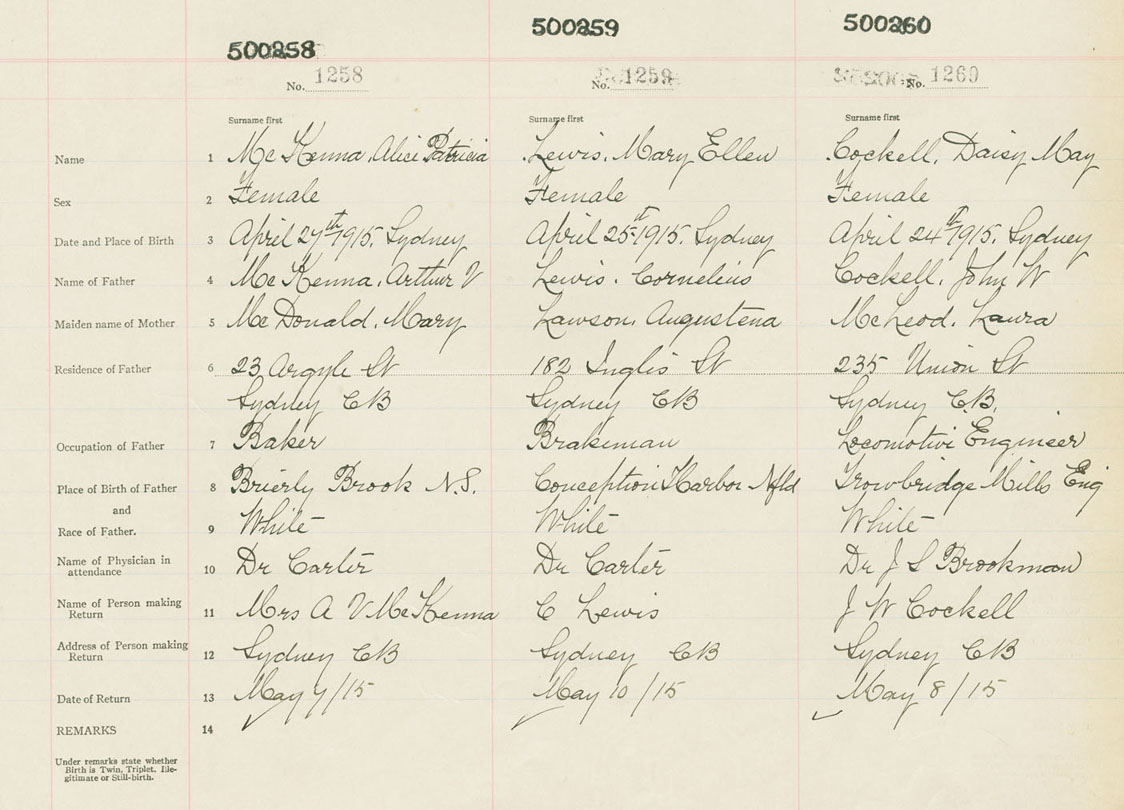 500258 500259 500260
No. 1258 No. 1259 No. 1260
Surname first Surname first Surname first
Name 1 McKenna, Alice Patricia Lewis, Mary Ellen Cockell, Daisy May
Sex 2 Female Female Female
Date and Place of Birth 3 April 27th 1915, Sydney April 25th 1915, Sydney April 24th 1915, Sydney
Name of Father 4 McKenna, Arthur V Lewis, Cornelius Cockell, John W
Maiden name of Mother 5 McDonald, Mary Lawson, Augustena McLeod, Laura
Residence of Father 6 23 Argyle St 182 Inglis St 235 Union St
Sydney CB Sydney CB Sydney C.B.
Occupation of Father 7 Baker Brakeman Locomotive Engineer
Place of Birth of Father 8 Brierly Brook N.S. Conception Harbor Nfld Trowbridge Mills Eng
and
Race of Father. 9 White White White
Name of Physician in attendance 10 Dr Carter Dr Carter Dr J S Brookman
Name of Person making Return 11 Mrs A V McKenna C Lewis J W Cockell
Address of Person making Return 12 Sydney CB Sydney CB Sydney CB
Date of Return 13 May 7/15 May 10/15 May 8/15
REMARKS 14
Under remarks state whether
Birth is Twin, Triplet, Ille-
gitimate or Still-birth.